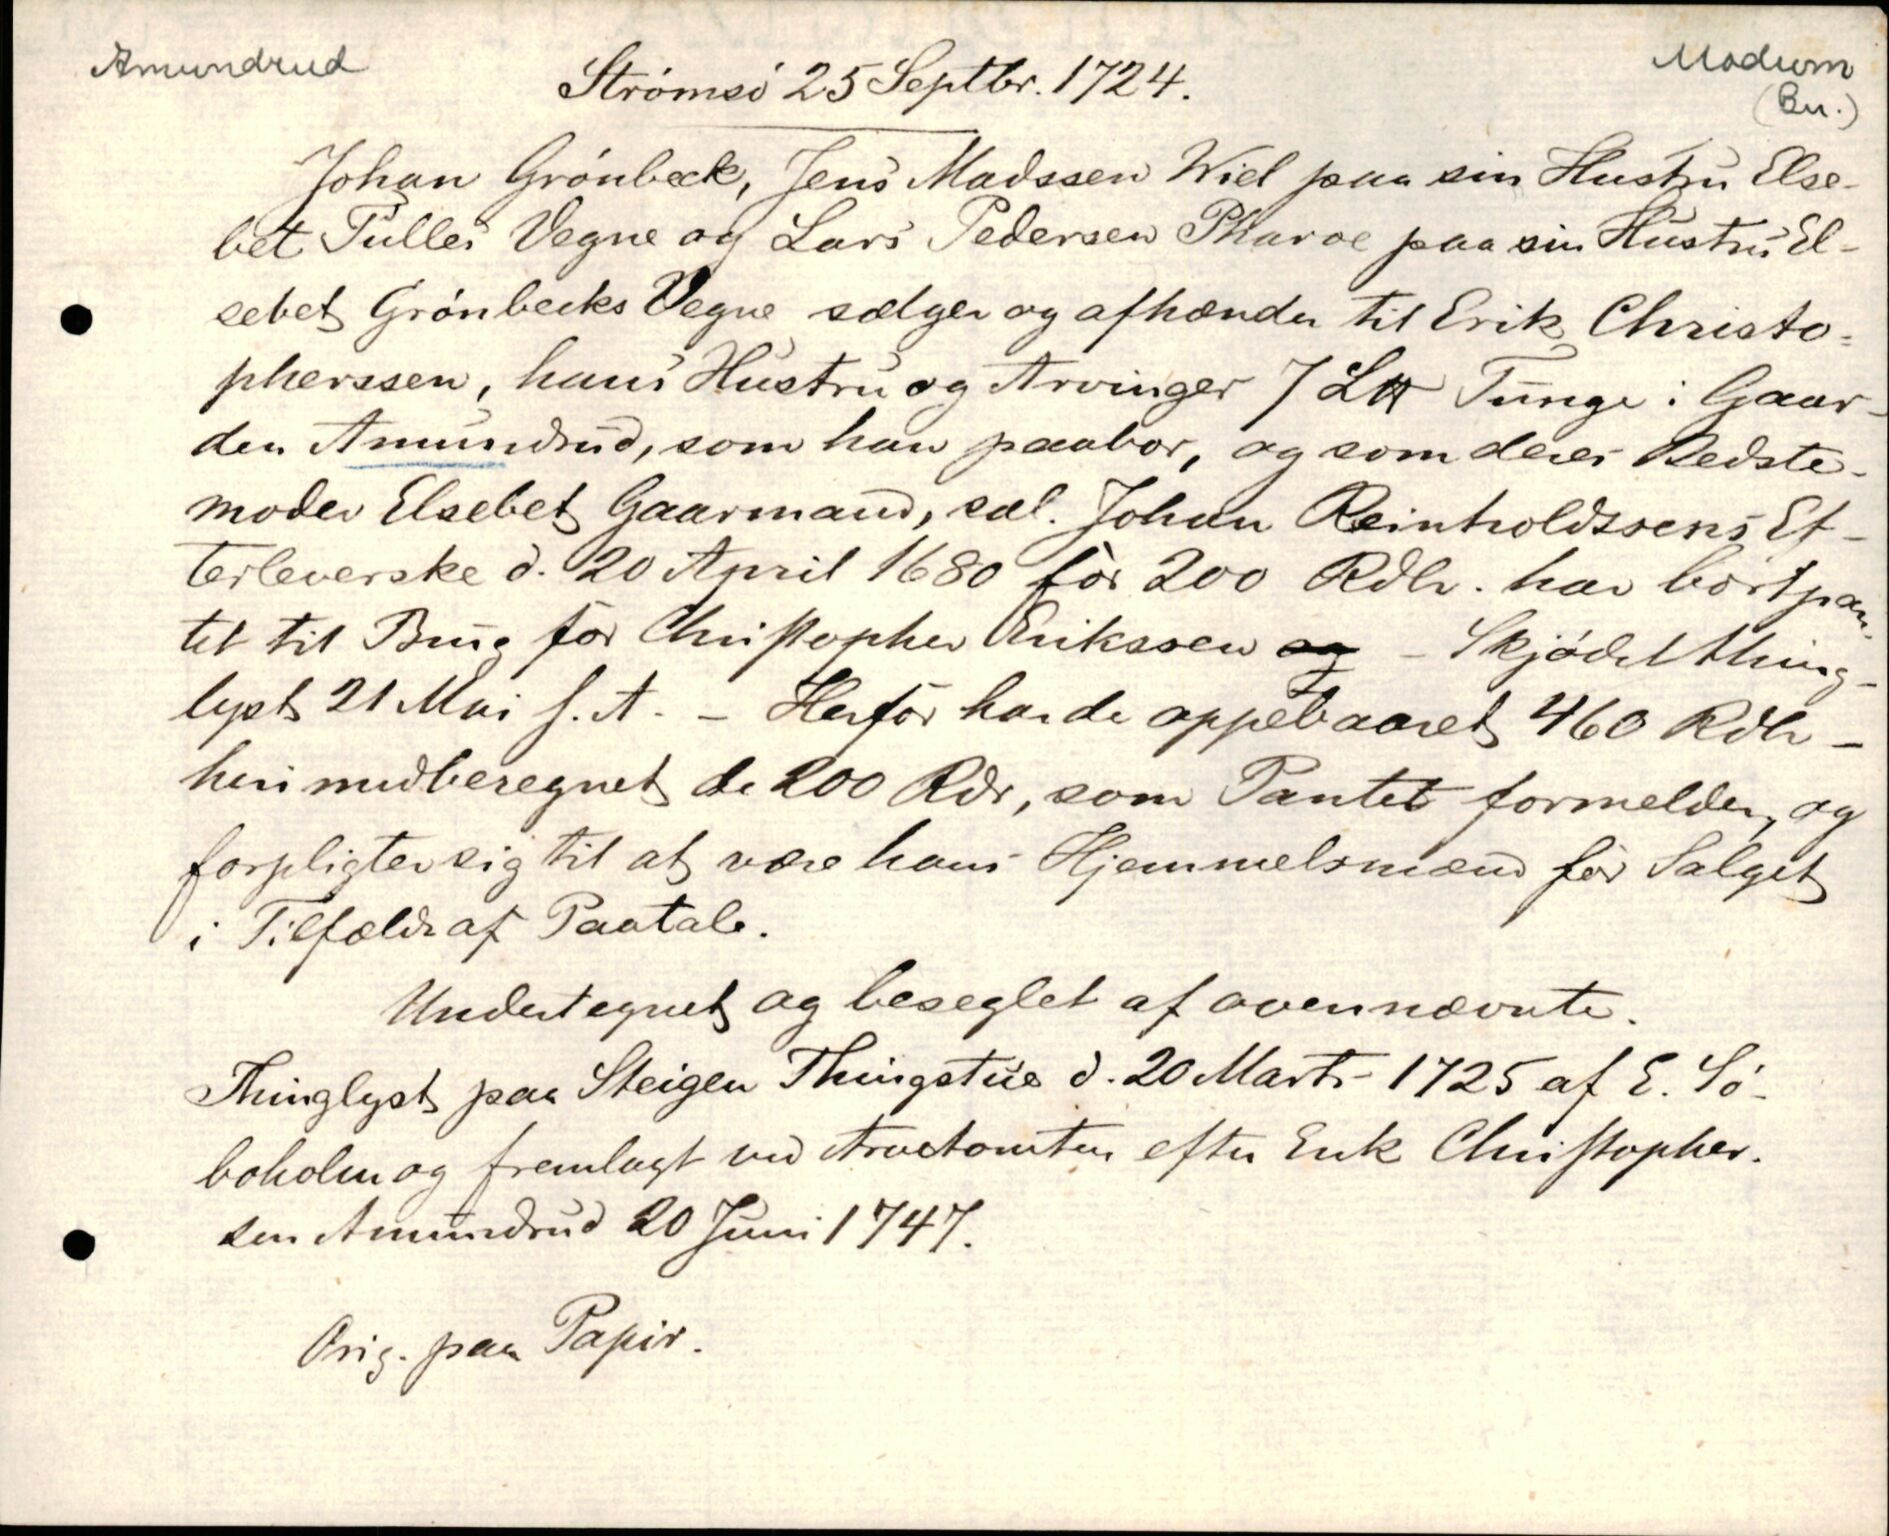 Amundrud
Modum
(Bu.)
Strømsö 25 Septbr. 1724.
Johan Grönbeck, Jens Madssen Wiel paa sin Hustru Else-
bet Tulles Vegne og Lars Pedersen Pharoe paa sin Hustru El-
sebet Grönbecks Vegne sælger og afhænder til Erik Christo-
pherssen, hans Hustru og Arvinger 7 L℔ Tunge i Gaar-
den Amundrud, som han paabor, og som deres Bedste-
moder Elsebet Gaarmand, sal. Johan Reinholdssens Ef-
terleverske d. 20 April 1680 för 200 Rdlr. har bortpan-
tet til Brug för Christopher Erikssen og - Skjödet thing-
lyst 21 Mai s. A. - Herför har de oppebaaret 460 Rdlr -
heri medberegnet de 200 Rdr, som Pantet formelder, og
forpligter sig til at være hans Hjemmelsmænd för Salget
i Tilfælde af Paatale.
Undertegnet og beseglet af ovennævnte.
Thinglyst paa Steigen Thingstue d. 20 Marts 1725 af E. Sö-
boholm og fremlagt ved Arvetomten efter Erik Christopher-
sen Amundrud 20 Juni 1747.
Orig. paa Papir.